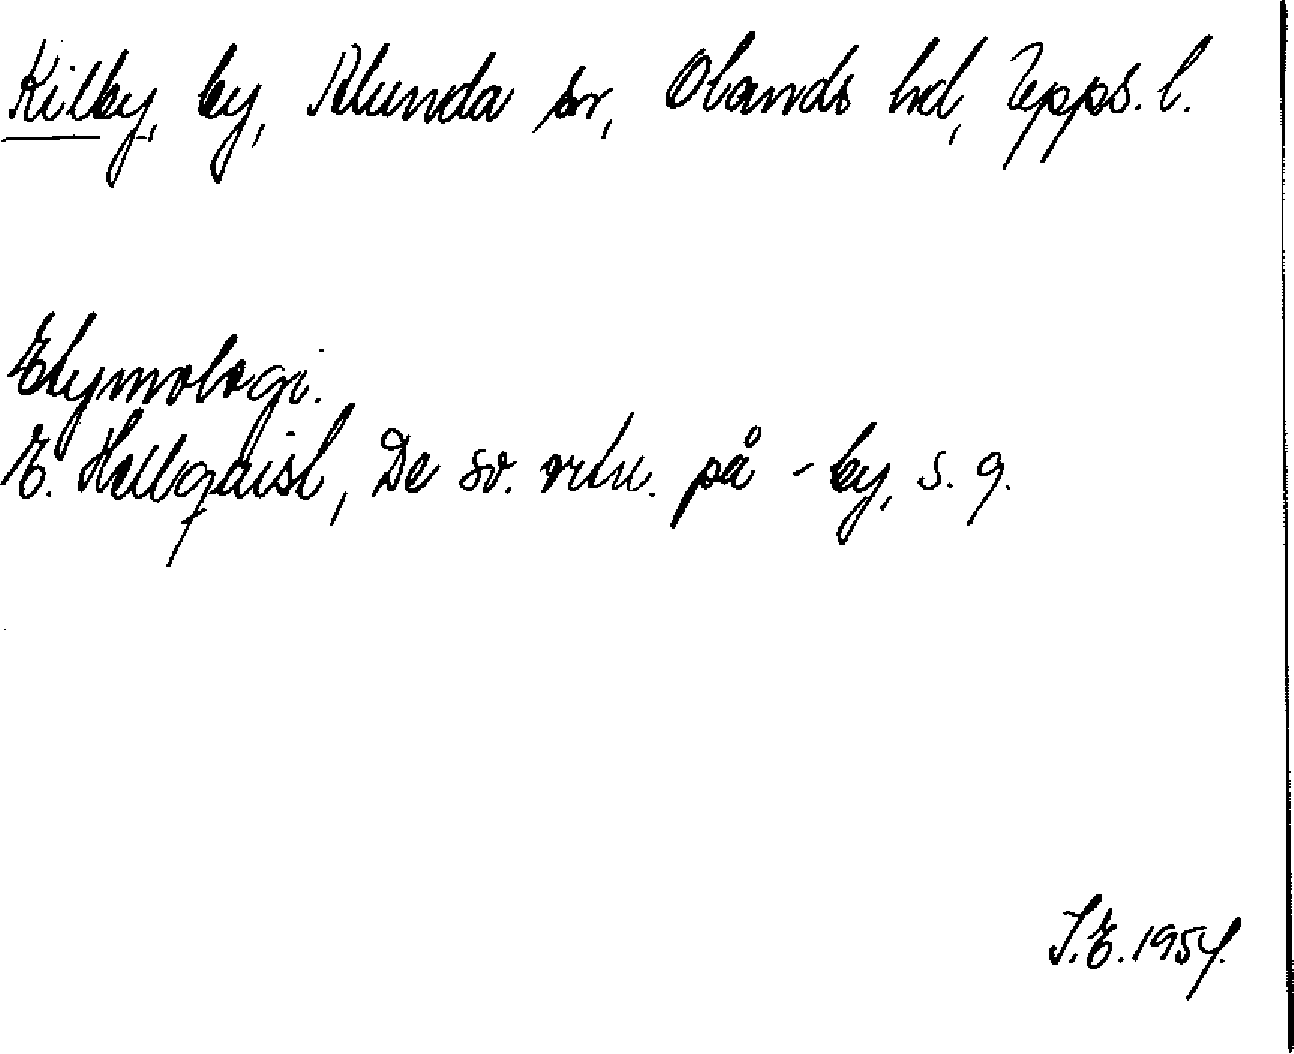 Kilby, by, Alunda sn, Olands hd, Upps. l.
Etymologi.
E. Hellquist, De sv. ortn. på -by, s. 9.
S.E. 1954.